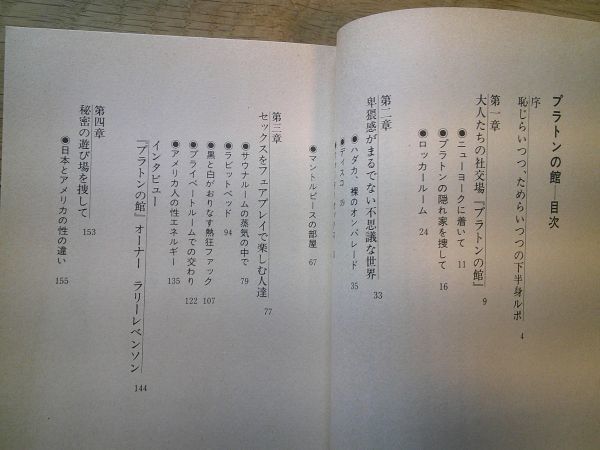 プラトンの館──目次
序
恥じらいつつ、ためらいつつの下半身ルポ 4
第一章
大人たちの社交場『プラトンの館』 9
●ニューヨークに着いて 11
●プラトンの隠れ家を捜して 16
●ロッカールーム 24
第二章
卑猥感がまるでない不思議な世界 33
●ハダカ、裸のオンパレード 35
●ディスコ
●マントルピースの部屋 67
第三章
セックスをフェアプレイで楽しむ人達 77
●サウナルームの蒸気の中で 79
●ラビットベッド 94
●黒と白がおりなす熱狂ファック 107
●プライベートルームでの交わり 122
●アメリカ人の性エネルギー 135
インタビュー
『プラトンの館』オーナー ラリーレベンソン 144
第四章
秘密の遊び場を捜して 153
●日本とアメリカの性の違い 155